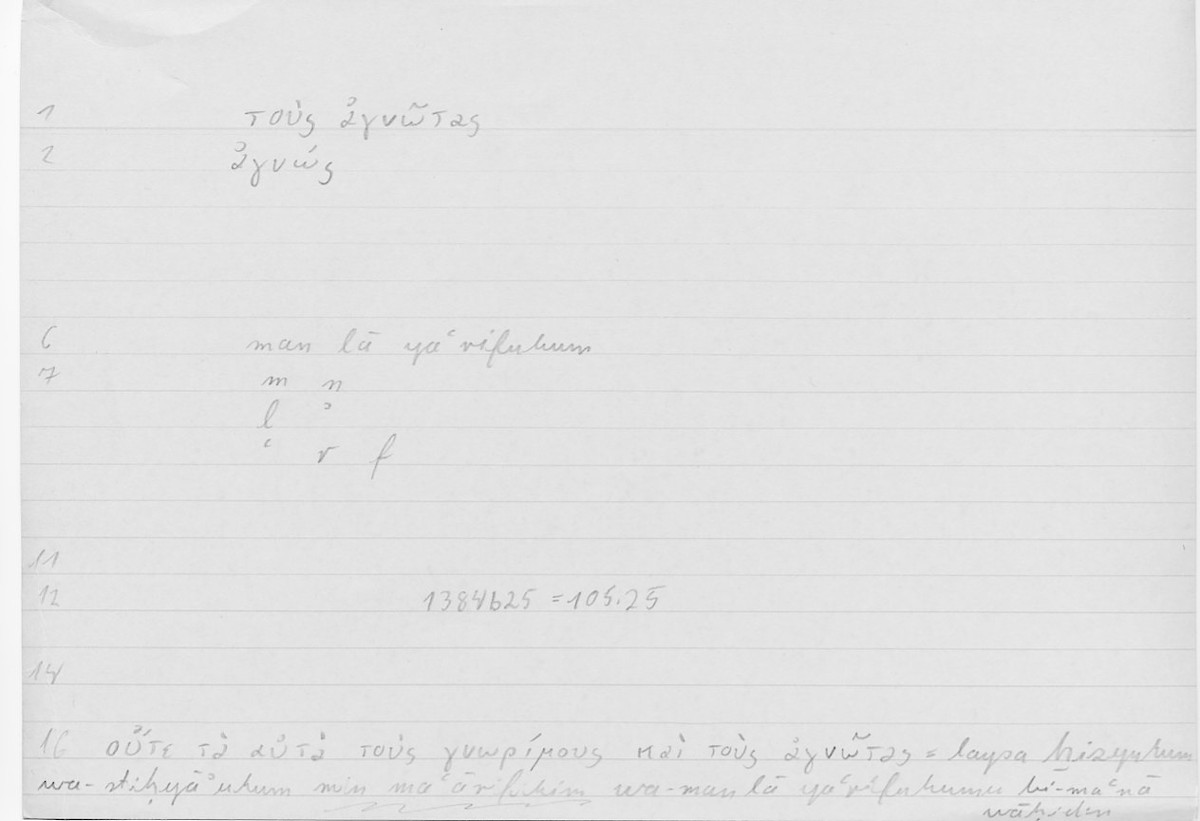 1 τοὺς ἀγνῶτας
2 ἀγνώς
6 man lā yaʿrifukum
7 m n
l ʾ
ʿ r f
11
12 1384b25 = 105.25
14
16 οὔτε τὰ αὐτὰ τοὺς γνωρίμους καὶ τοὺς ἀγνῶτας = laysa ḫizyukum
wa-stiḥyāʾukum min maʿārifikim wa-man lā yaʿrifukumu bi-maʿnā
wāḥidin